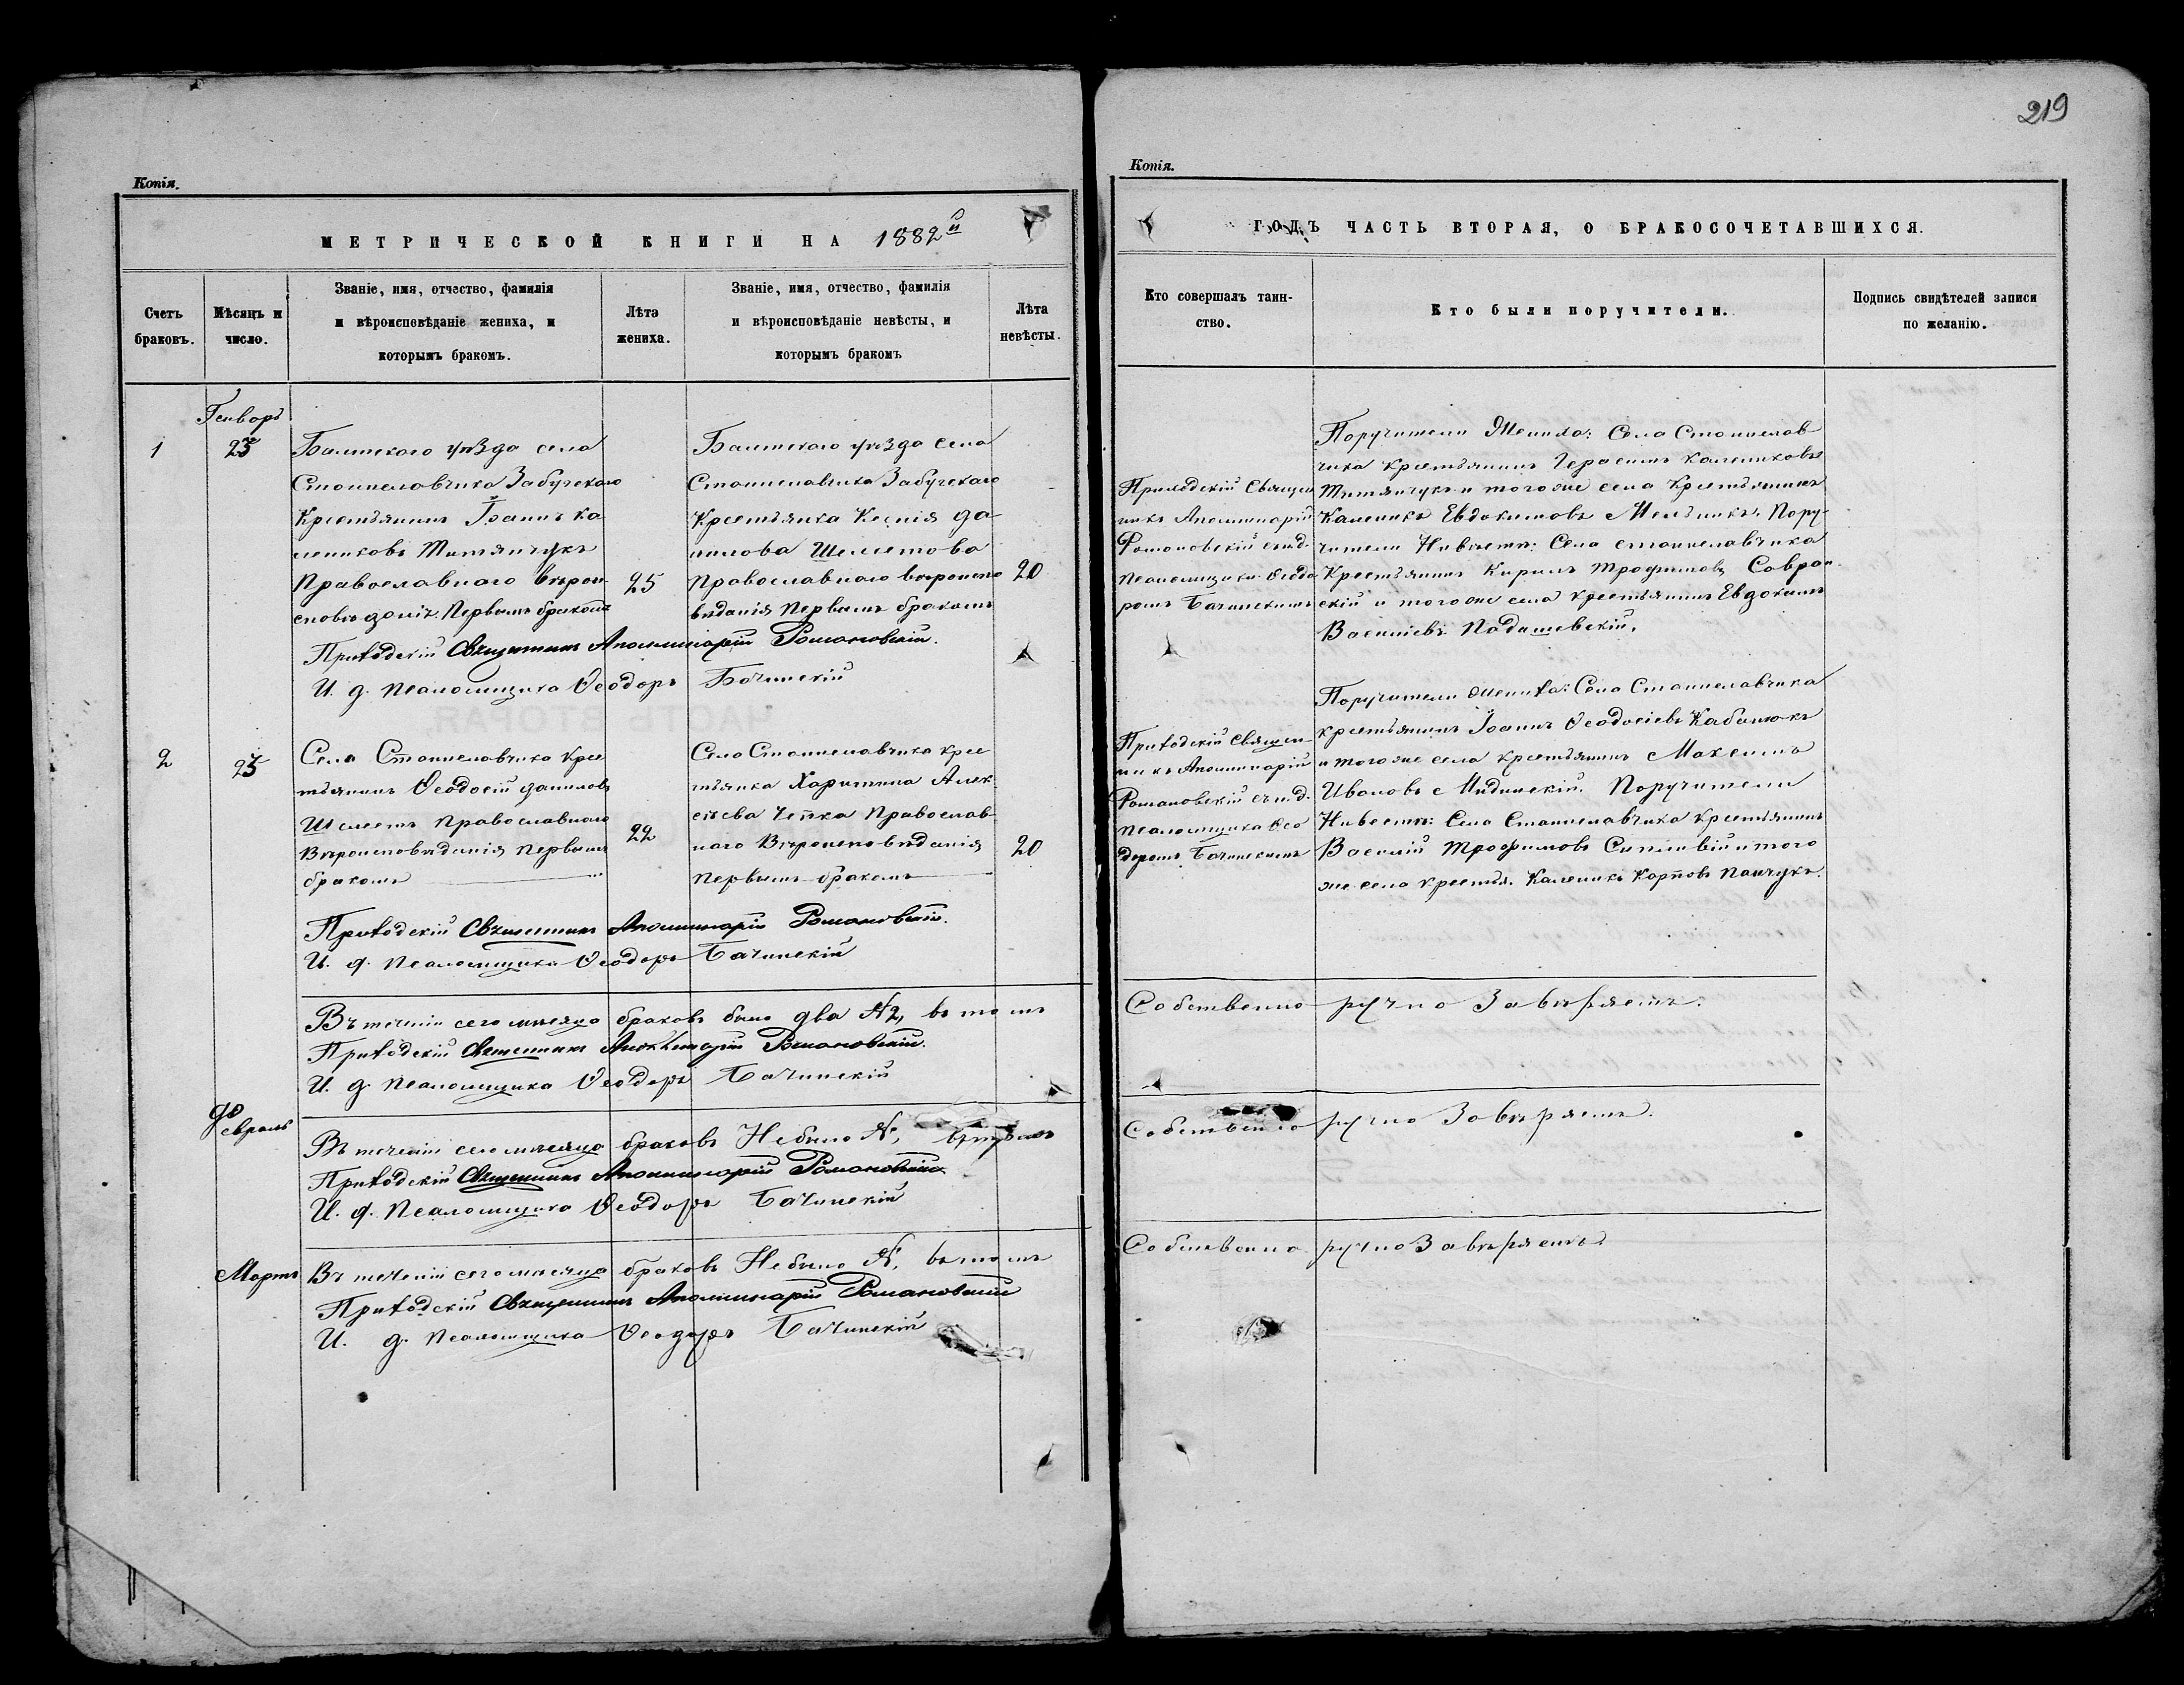 219
Копія.
МЕТРИЧЕСКОЙ КНИГИ НА 1882й
Счетъ браковъ.
Мѣсяцъ и число.
Званіе, имя, отчество, фамилія
и вѣроисповѣданіе жениха, и
которымъ бракомъ.
Лѣта
жениха.
Званіе, имя, отчество, фамилія
и вѣроисповѣданіе невѣсты, и
которымъ бракомъ
Лѣта
невѣсты.
Генварь
1
23
Балтскаго уѣзда села
Станиславчика Забугскаго
Крестьянинъ Іоаннъ Ка
лениковъ Титянчукъ
Православнаго вѣрои
сповѣданія. Первымъ бракомъ
25
Балтскаго уѣзда села
Станиславчика Забугскаго
Крестьянка Ксенія Да-
нилова Шелестова
Православнаго вѣроиспо
вѣданія первымъ бракомъ
20
Приходскій Священникъ Аполлинарій Романовскій.
И. д. псаломщика Ѳеодоръ Бачинскій
2
23
Села Станиславчика Крес
тьянинъ Ѳеодосій Даниловъ
Шелестъ Православнаго
Вѣроисповѣданія первымъ
бракомъ
22
Села Станиславчика крес
тьянка Харитина Алек
сѣева Православ-
наго Вѣроисповѣданія
первымъ бракомъ
20
Приходскій Священникъ Аполлинарій Романовскій.
И. д. псаломщика Ѳеодоръ Бачинскій
Въ теченіи сего мѣсяца браковъ было два №2, въ томъ
Приходскій Священникъ Аполлинарій Романовскій.
И. д. псаломщика Ѳеодоръ Бачинскій
Февраль
Въ теченіи сего мѣсяца браковъ Небыло №, въ томъ
Приходскій Священникъ Аполлинарій Романовскій
И. д. Псаломщика Ѳеодоръ Бачинскій
Мартъ
Въ теченіи сего мѣсяца браковъ Небыло №, въ томъ
Приходскій Священникъ Аполлинарій Романовскій
И. д. Псаломщика Ѳеодоръ Бачинскій
Копія.
ГОДЪ ЧАСТЬ ВТОРАЯ, О БРАКОСОЧЕТАВШИХСЯ.
Кто совершалъ таин-
ство.
Кто были поручители.
Подпись свидѣтелей записи
по желанію.
Приходскій Священ
никъ Аполлинарій
Романовскій съ и.д.
псаломщика Ѳеодо
ромъ Бачинскимъ
Поручители Жениха: Села Станислав
чика крестьянинъ Герасимъ Калениковъ
Титянчукъ и того же села Крестьянинъ
Каленикъ Евдокимовъ Мельникъ. Пору-
чители Невѣсты: Села Станиславчика
Крестьянинъ Кирилъ Трофимовъ Савран-
скій и того же села крестьянинъ Евдокимъ
Василіевъ Падишевскій.
Приходскій Священ-
никъ Аполлинарій
Романовскій съ и.д.
псаломщика Ѳео
доромъ Бачинскимъ
Поручители жениха: Села Станиславчика
крестьянинъ Іоаннъ Ѳеодосіевъ Кабанюкъ
и того же села крестьянинъ Максимъ
Ивановъ Мидинскій. Поручители
Невѣсты: Села Станиславчика крестьянинъ
Василій Трофимовъ и того
же села крестья. Каленикъ Карповъ Панчукъ.
Собственно ручно Завѣряетъ.
Собственно ручно Завѣряетъ.
Собственно ручно Завѣряетъ.